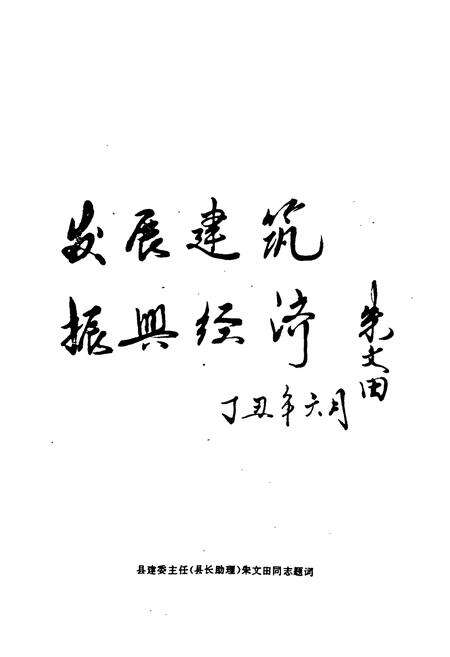 发展建筑
振興经济
朱文田
丁丑年六月
县建委主任(县长助理)朱文田同志题词